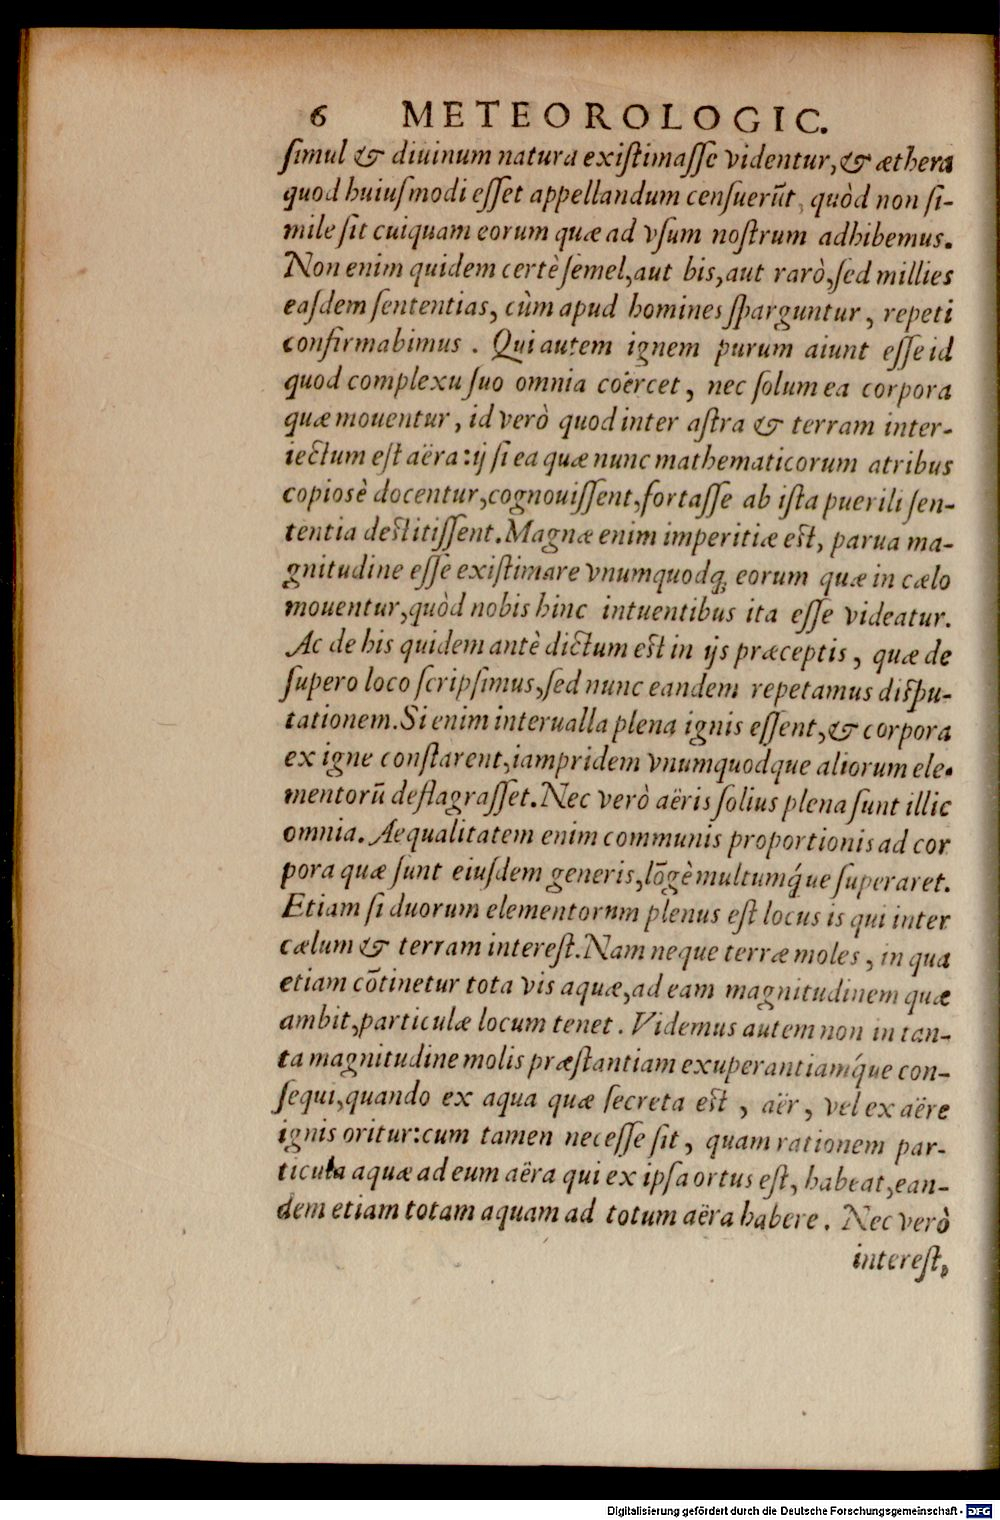 6 METEOROLOGIC.
ſimul & diuinum natura exiſtimaſſe videntur, & æthera
quod huiuſmodi eſſet appellandum cenſuerūt, quòd non ſi-
mile ſit cuiquam eorum quæ ad vſum noſtrum adhibemus.
Non enim quidem certè ſemel, aut bis, aut rarò, ſed millies
eaſdem ſententias, cùm apud homines ſparguntur, repeti
confirmabimus. Qui autem ignem purum aiunt eſſe id
quod complexu ſuo omnia coërcet, nec ſolum ea corpora
quæ mouentur, id verò quod inter aſtra & terram inter-
iectum eſt aëra: ij ſi ea quæ nunc mathematicorum atribus
copiosè docentur, cognouiſſent, fortaſſe ab iſta puerili ſen-
tentia deſtitiſſent. Magnæ enim imperitiæ eſt, parua ma-
gnitudine eſſe exiſtimare vnumquodq; eorum quæ in cælo
mouentur, quòd nobis hinc intuentibus ita eſſe videatur.
Ac de his quidem antè dictum eſt in ijs præceptis, quæ de
ſupero loco ſcripſimus, ſed nunc eandem repetamus diſpu-
tationem. Si enim interualla plena ignis eſſent, & corpora
ex igne conſtarent, iampridem vnumquodque aliorum ele-
mentorū deflagraſſet. Nec verò aëris ſolius plena ſunt illic
omnia. Aequalitatem enim communis proportionis ad cor
pora quæ ſunt eiuſdem generis, lōgè multumq́ue ſuperaret.
Etiam ſi duorum elementorum plenus eſt locus is qui inter
cælum & terram intereſt. Nam neque terræ moles, in qua
etiam cōtinetur tota vis aquæ, ad eam magnitudinem quæ
ambit, particulæ locum tenet. Videmus autem non in tan-
ta magnitudine molis præſtantiam exuperantiamq́ue con-
ſequi, quando ex aqua quæ ſecreta eſt, aër, vel ex aëre
ignis oritur: cum tamen neceſſe ſit, quam rationem par-
ticula aquæ ad eum aëra qui ex ipſa ortus eſt, habeat, ean-
dem etiam totam aquam ad totum aëra habere. Nec verò
intereſt,
Digitalisierung gefördert durch die Deutsche Forschungsgemeinschaft - DFG